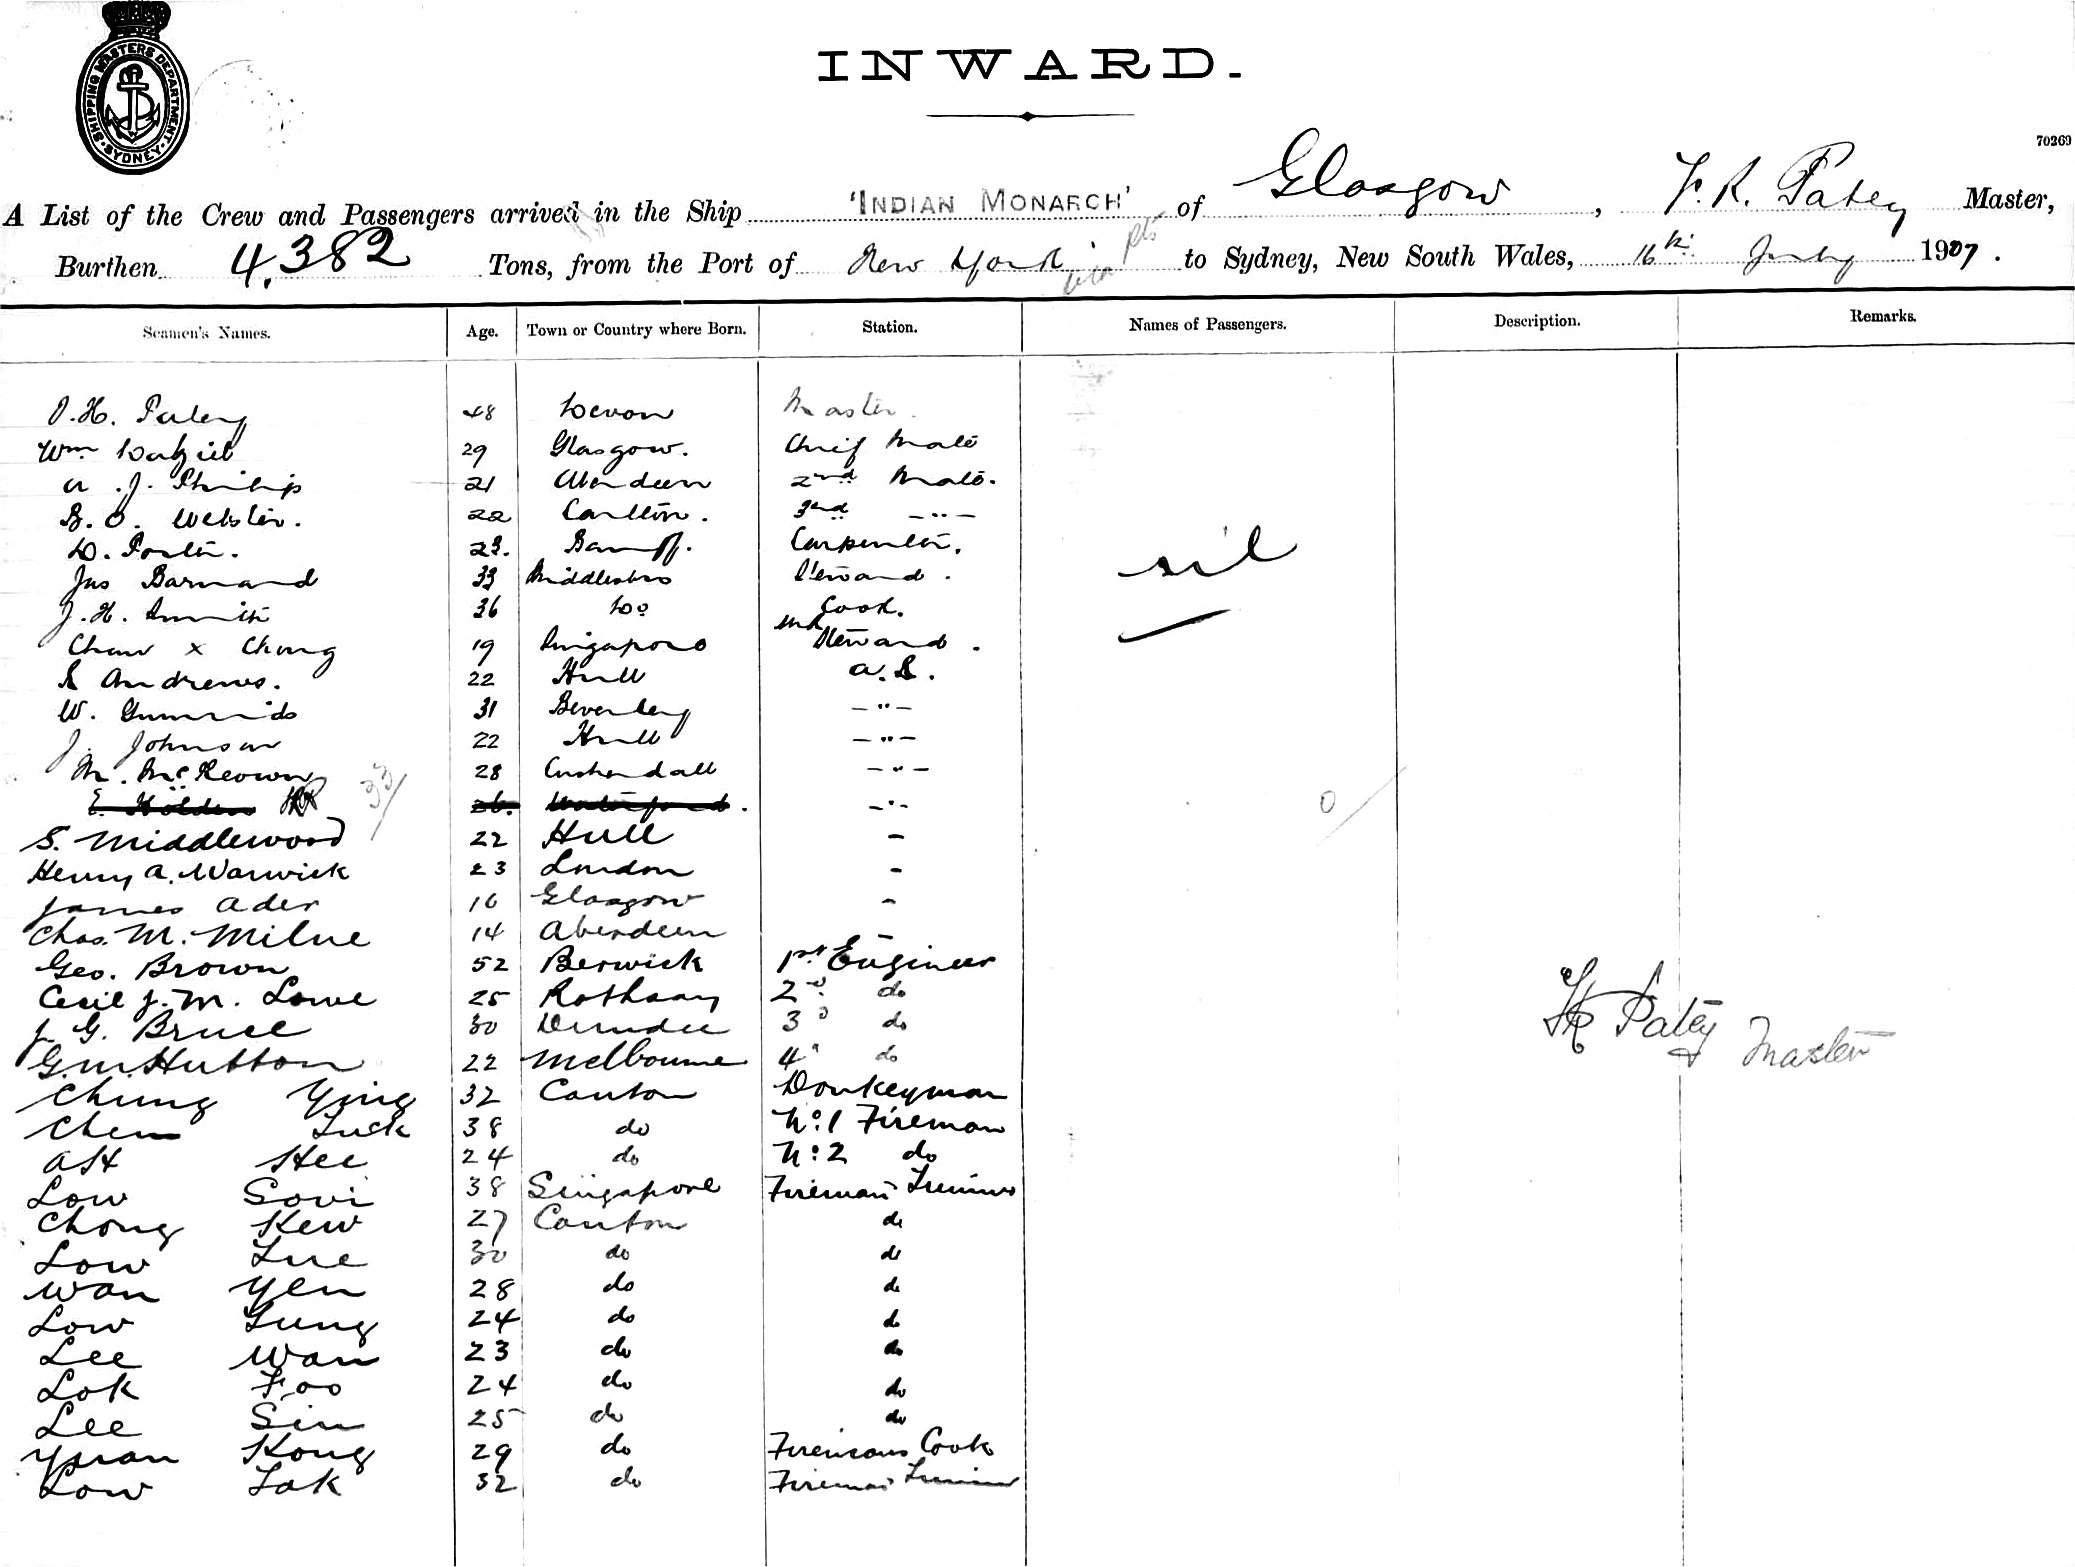 SHIPPING MASTERS DEPARTMENT
SYDNEY
INWARD.
70269
A List of the Crew and Passengers arrived in the Ship 'INDIAN MONARCH' of Glasgow, F. R. Patey Master,
Burthen 4,382 Tons, from the Port of New York via to Sydney, New South Wales, 16th July 1907.
Seamen's Names. Age. Town or Country where Born. Station. Names of Passengers. Description. Remarks.
Patey 48 Devon Master.
Wm Dalziel 29 Glasgow. Chief Mate
A. J. Philip 21 Aberdeen 2nd Mate.
B. O. Webster. 22 Carlton. 3rd -"-
D. Porter. 23. Banff. Carpenter.
Jas Barnard 33 Middlesbro Steward.
J. H. Smith 36 Do Cook.
Chaw x Chong 19 Singapore Steward.
S Andrews. 22 Hull A.B.
W. 31 Beverley -"-
J. Johnson 22 Hull -"-
M. McKeown 28 Cushendall -"-
E. Holden 26. Waterford. -"-
33
S. Middlewood 22 Hull -
Henry A. Warwick 23 London -
James Ader 16 Glasgow -
Chas. M. Milne 14 Aberdeen -
Geo. Brown 52 Berwick 1st Engineer
Cecil J. M. Lowe 25 Rothsay 2nd do
J. G. Bruce 30 Dundee 3d do
G. M. Hutton 22 Melbourne 4" do
Chung Ying 32 Canton Donkeyman
Chem Tuck 38 do No. 1 Fireman
AH Hee 24 do No: 2 do
Low Sovi 38 Singapore Fireman Trimmer
Chong Kew 27 Canton do
Low Lue 30 do do
Wan Yen 28 do do
Low Sung 24 do do
Lee Wan 23 do do
Lok Foo 24 do do
Lee Sin 25 do do
Yuan Kong 29 do Firemans Cook
Low Tak 32 do Fireman Trimmer
nil
0
FR Patey Master